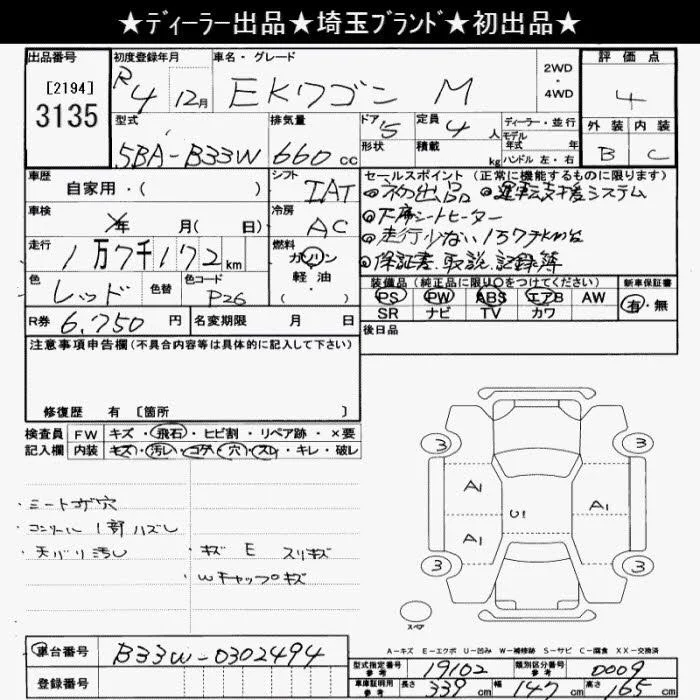 ★ディーラー出品★埼玉ブランド★初出品★
出品番号 初度登録年月 車名・グレード 評価点
[2194]
3135
R4 12月 EKワゴン M
2WD・4WD
4
型式 排気量 ドア 定員 ディーラー・並行 外装 内装
5BA-B33W 660cc 5 4人
モデル年式 年
形状 積載 kg ハンドル 左・右
B C
車歴 シフト セールスポイント(正常に機能するものに限ります)
自家用・( ) IAT
◎初出品 ◎運転支援システム
車検 冷房
年 月( 日) AC
◎下席シートヒーター
走行 燃料
1万7千172km ガソリン
◎走行少ない1.57千km台
軽・油
・( )
◎保証書、取説、記録簿
色 色替 色コード
レッド P26
装備品(純正品に限り○をつけてください) 新車保証書
PS PW ABS エアB AW 有・無
SR ナビ TV カワ
R券 6,750円 名変期限 月 日
後日品
注意事項申告欄(不具合内容等は具体的に記入して下さい)
修復歴 有 [箇所 ]
検査員記入欄 FW キズ・飛石・ヒビ割・リペア跡・×要
内装 キズ・汚レ・コゲ・穴・スレ・キレ・破レ
・シートコゲ穴
・コンソール1部ハズレ
・天バリ汚レ
・キズ E スリキズ
・Wキャップキズ
3 3
A1 A1
U1
A1
3 3
スペア
A-キズ E-エクボ U-凹み W-補修跡 S-サビ C-腐食 XX-交換済
車台番号 B33W-0302494
登録番号
型式指定番号 参考 19102 類別区分番号 参考 0009
車庫証明用 参考 長さ 339cm 幅 147cm 高さ 165cm